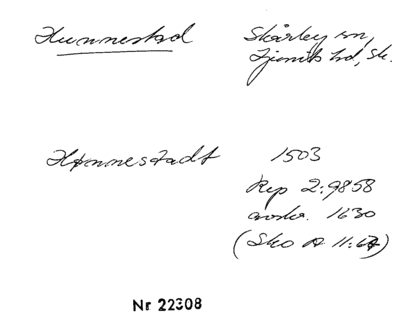 Hunnestad Skårby sn,
Ljunits hd, Sk.
Hunnestadt 1503
Rep 2:9858
avskr. 1630
(Sko A 11:64)
Nr 22308